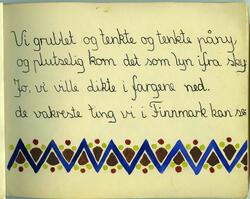 Vi grublet og tenkte og tenkte påny
og plutselig kom det som lyn ifra sky
Jo, vi ville dikte i fargene ned.
de vakreste ting vi i Finnmark kan se